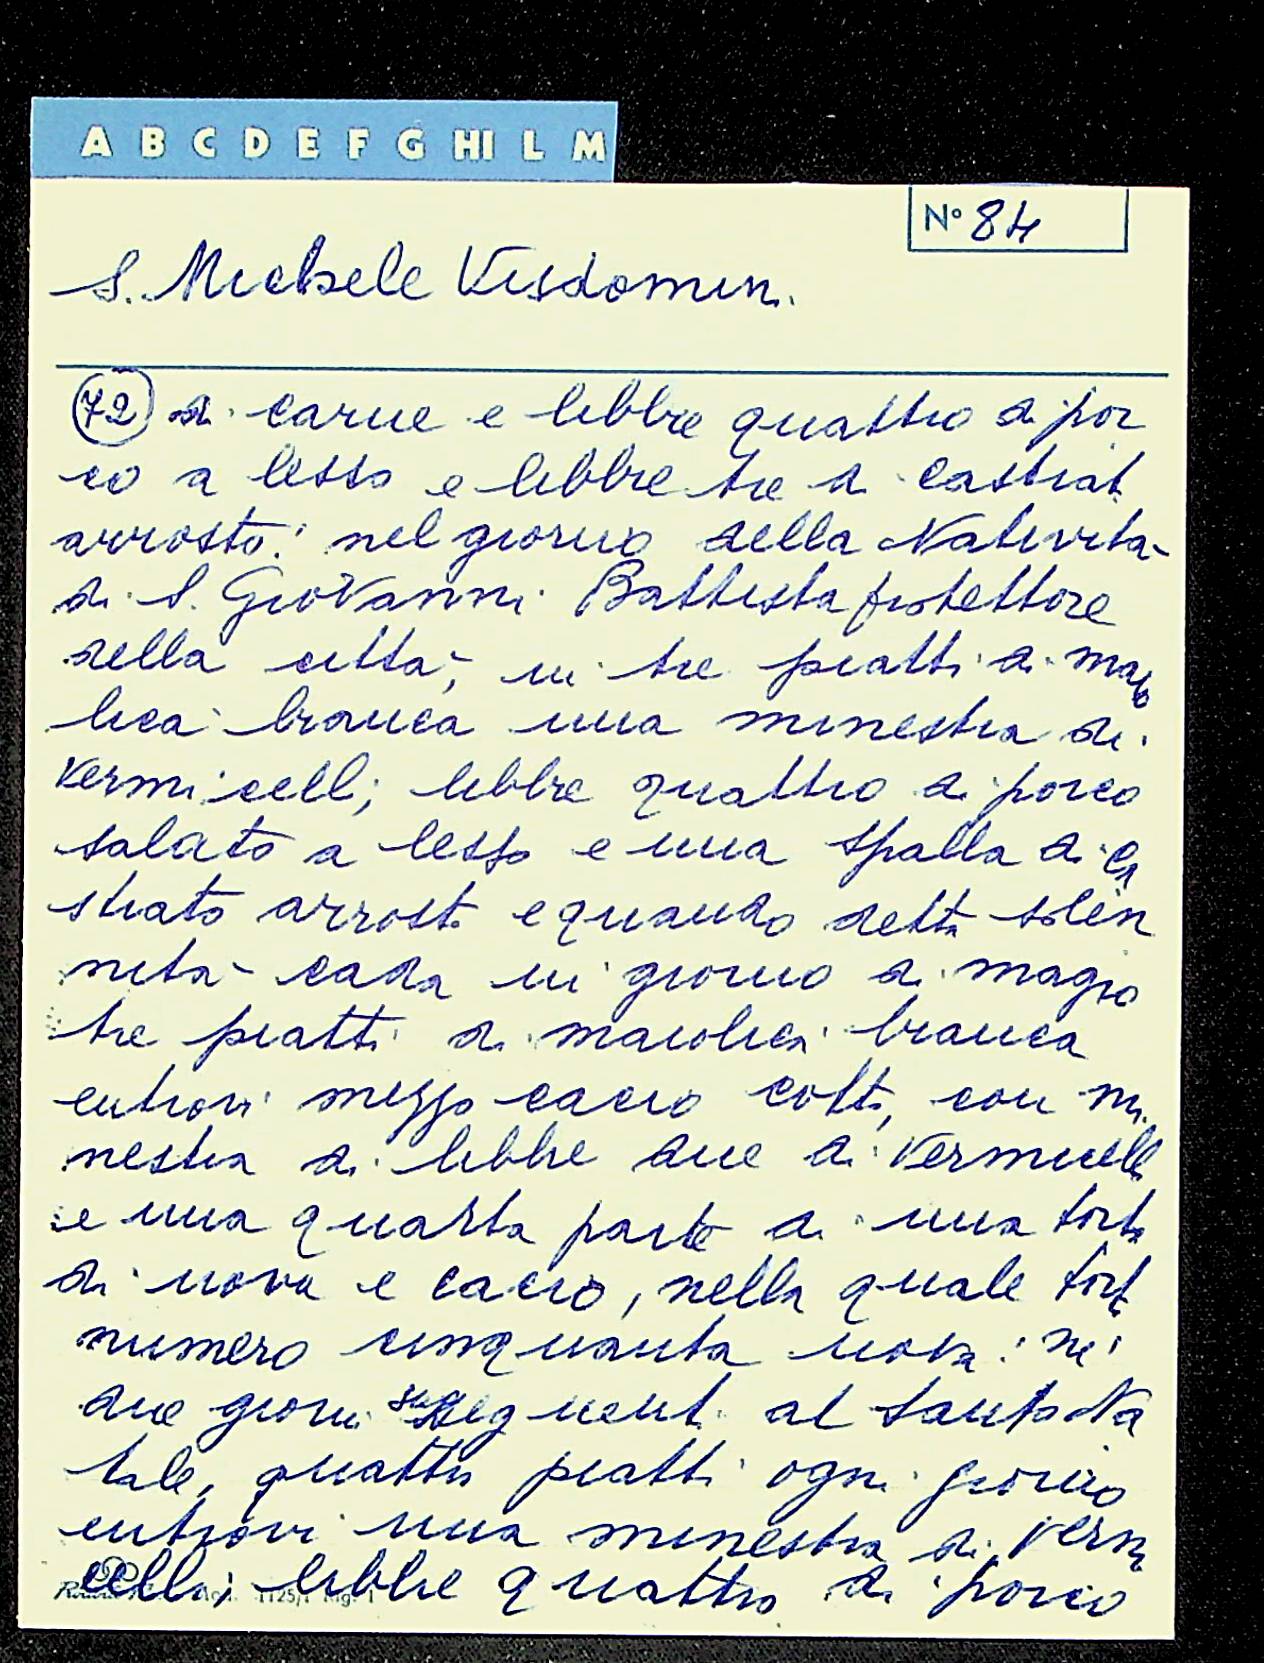 A B C D E F G HI L M
N° 84
S. Michele Visdomini
72 di carne e libbre quattro di por
co a lesso e libbre tre di castrato
arrosto: nel giorno della Natività
di S. Giovanni Battista protettore
della città, in tre piatti di majo
lica bianca una minestra di
vermicelli; libbre quattro di porco
salato a lesso e una spalla di ca
strato arrosto e quando detta solen
nità cada in giorno di magro
tre piatti di maiolica bianca
entrovi mezzo cacio cotto, con mi
nestra di libbre due di vermicelli
e una quarta parte di una torta
di uova e cacio, nella quale torta
numero cinquanta uova: nei
due giorni susseguenti al Santo Na
tale, quattro piatti ogni giorno
entrovi una minestra di vermi
celli; libbre quattro di porco
1125/1